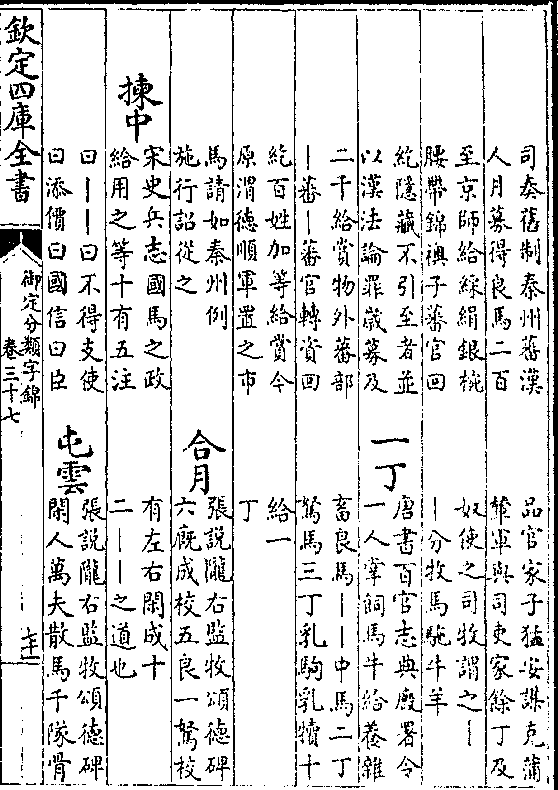 司奏舊制秦州蕃漢
人月募得良馬二百
至京師給綵絹銀椀
腰帶錦襖子蕃官回
紇隱藏不引至者並
以漢法論罪歲募及
二千給賞物外蕃部
丨蕃丨蕃官轉資回
紇百姓加等給賞今
原渭德順軍置之市
馬請如秦州例
施行詔從之
揀中
宋史兵志國馬之政
給用之等十有五注
曰丨丨曰不得支使
曰添價曰國信曰臣
品官家子猛安謀克蒲
輦軍與司吏家餘丁及
奴使之司牧謂之丨
丨分牧馬駞牛羊
一丁
唐書百官志典廐署令
一人掌飼馬牛給養雜
畜良馬丨丨中馬二丁
駑馬三丁乳駒乳犢十
給一
丁
合月
張說隴右監牧頌德碑
六廐成校五良一駑校
有左右閑成十
二丨丨之道也
屯雲
張說隴右監牧頌德碑
閑人萬夫散馬千隊骨
欽定四庫全書
御定分類字錦
卷三十七